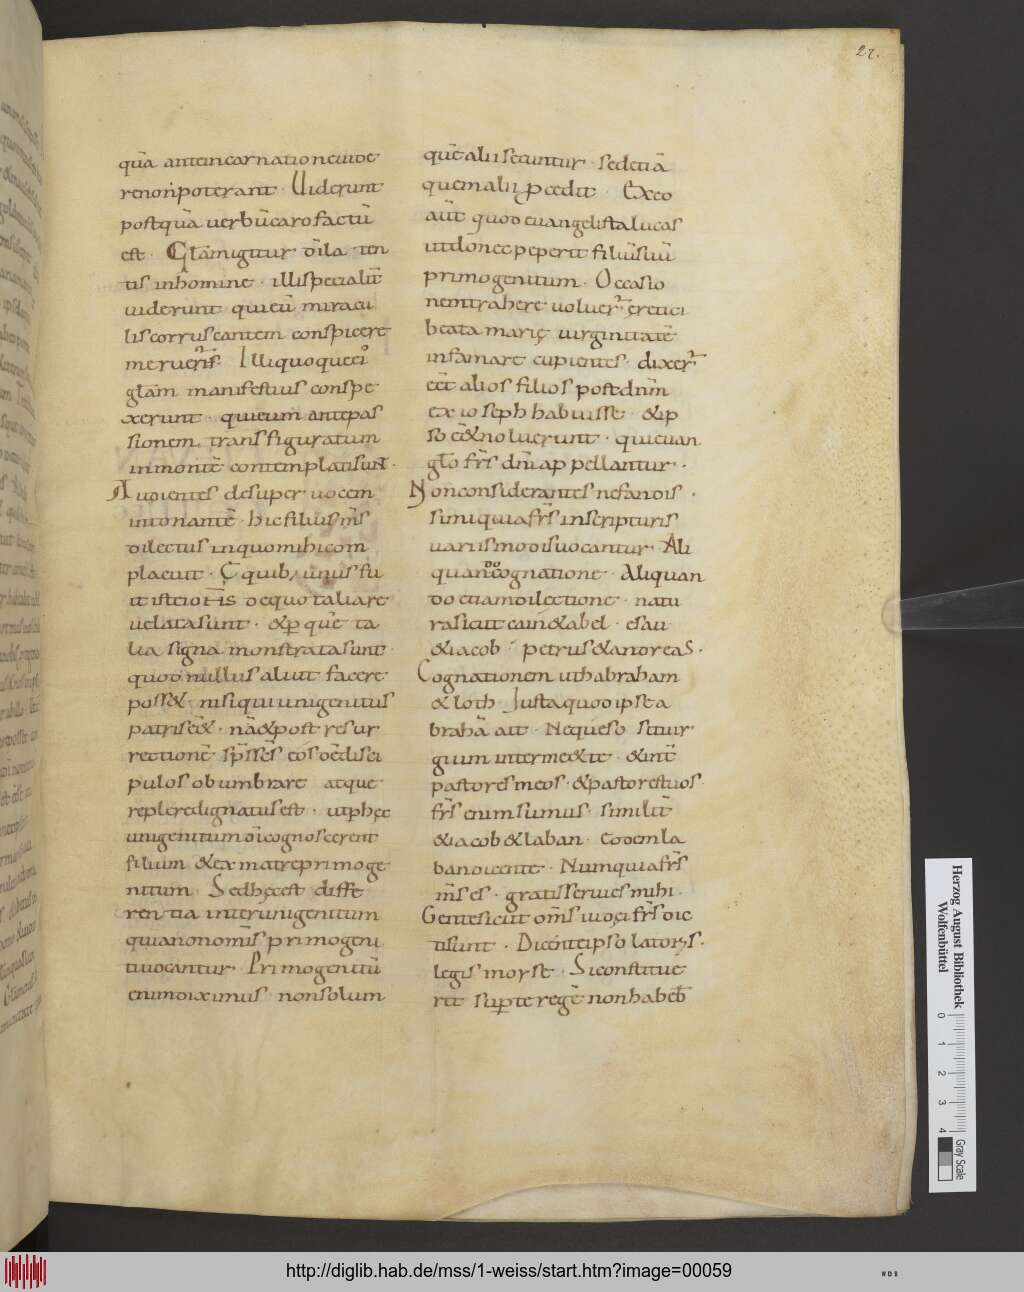 27.
quā anteincarnationeuide
renonpoterant · Uiderunt
postquā uerbūcarofactū
est · Gla̅migitur diīla ten
tis inhomine · illispecialit̄
uiderunt quieū miracu
liscorruscantem conspicere
meruer̄ · Illiquoqueei
gla̅m manifestius conspe
xerunt · quieum antepas
sionem transfiguratum
inmonte contemplatisunt ·
Audientes desuper uocem
intonantē · hicfilius m̄s
dilectus inquomihicom
placuit · unusfu
it dequotaliare
uelatasunt · &p quē ta
lia signa monstratasunt ·
quod nullusaliut facere
poss& · nisiquiunigenitus
patrisē& · nā&postresur
rectionē sp̄sse̅s eosoēdisci
pulosobumbrare atque
repleredignatusest · utphęc
unigenitumdīcognoscerent
filium &exmatreprimoge
nitum · Sedhęcest diffe
rentia interunigenitum
quianonom̄s primogeni
tiuocantur · Primogenitū
enimdiximus · nonsolum
quē aliisecuntur · sedetiā
quemalii p̄cedit · Exeo
aūt quodeuangelistalucas
utdonecpeperit filiūsuū
primogenitum · Occasio
nemtrahere uoluer̄ eretici
beata marię uirginitatē
infamare cupientes · dixer̄
eēt alios filios postdn̄m
ex ioseph habuisse · &ip
so ē&noluerunt · quieuan
gło fr̄s dn̄iappellantur ·
Nonconsiderantes nefandis ·
simi quiafr̄s inscripturis
uariismodisuocantur · Ali
quandocognatione · Aliquan
do etiamdilectione · natu
rasicut cain&abel · esau
&iacob · petrus&andreas ·
Cognationem uthabraham
& loth · Iuxtaquodipsea
brahā ait · Nequęso sitiur
gium interme&te · &int̄
pastoresmeos · &pastorestuos ·
fr̄s enimsumus · similit̄
&iacob&laban · Eodemla
bandicente · Numquiafr̄s
m̄s es · gratisseruiesmihi ·
Gentesicut om̄s iudęi fr̄sdic
tisunt · Dicenteipsolatoris ·
legis moyse · Siconstitue
rit sup̄te regē nonhabeb̄
Herzog August Bibliothek
Wolfenbüttel
0 1 2 3 4
Gray Scale
http://diglib.hab.de/mss/1-weiss/start.htm?image=00059